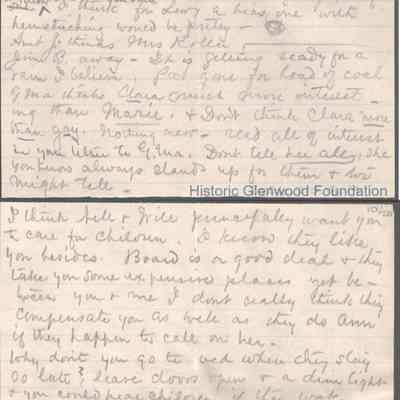 I think for Levy a hens, one with
hemstitching would be pretty —
Aunt J. thinks Mrs
Jim B. away — It is getting ready for a
rain I believe. gone for load of coal
G'ma thinks Clara much more interest-
ing than Marie. & Don't think Clara more
than gay. Nothing new — read all of interest
in your letter to G'ma. Don't tell her all, she
you know always stands up for them & we
might tell —
Historic Glenwood Foundation
I think & Will principally want you
to care for children. I know they like
you besides. Board is a good deal & they
take you some expensive places yet be-
tween you & me I don't really think they
compensate you as well as they do Ann
if they happen to call on her.
Why don't you go to bed when they stay
so late? leave doors open & a dim light
& you could hear children if they